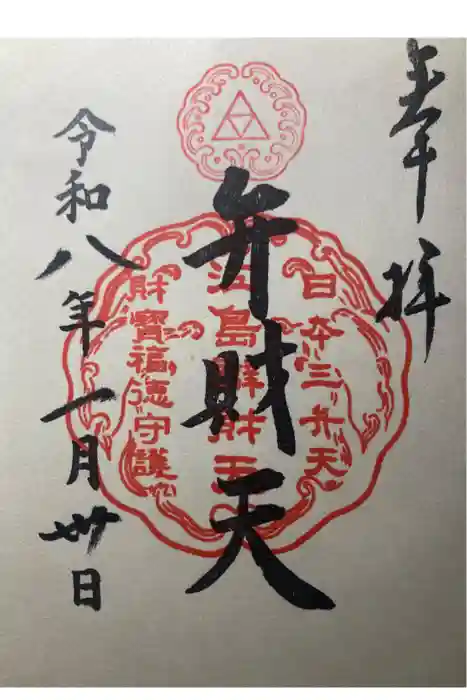 奉拝
日本三弁天
弁財天
江島辨財天
財寳福徳守護
令和八年一月卅日